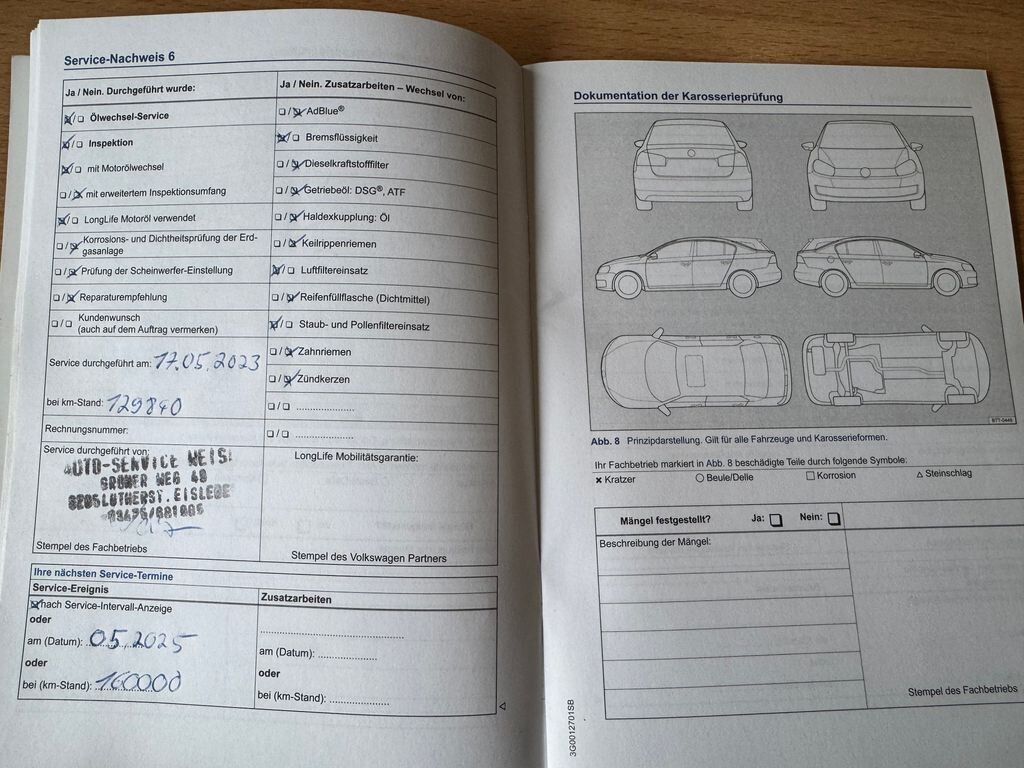 Service-Nachweis 6
Ja / Nein. Durchgeführt wurde:
Ölwechsel-Service
Inspektion
mit Motorölwechsel
mit erweitertem Inspektionsumfang
LongLife Motoröl verwendet
Korrosions- und Dichtheitsprüfung der Erd-
gasanlage
Prüfung der Scheinwerfer-Einstellung
Reparaturempfehlung
Kundenwunsch
(auch auf dem Auftrag vermerken)
Service durchgeführt am: 17.05.2023
bei km-Stand: 129840
Rechnungsnummer:
Service durchgeführt von:
AUTO-SERVICE WEIS
GRÜNER WEG 49
LUTHERST. EISLEBE
03475/681005
Stempel des Fachbetriebs
Ja / Nein. Zusatzarbeiten – Wechsel von:
AdBlue®
Bremsflüssigkeit
Dieselkraftstofffilter
Getriebeöl: DSG®, ATF
Haldexkupplung: Öl
Keilrippenriemen
Luftfiltereinsatz
Reifenfüllflasche (Dichtmittel)
Staub- und Pollenfiltereinsatz
Zahnriemen
Zündkerzen
LongLife Mobilitätsgarantie:
Stempel des Volkswagen Partners
Ihre nächsten Service-Termine
Service-Ereignis
nach Service-Intervall-Anzeige
oder
am (Datum): 05.2025
oder
bei (km-Stand): 160000
Zusatzarbeiten
am (Datum):
oder
bei (km-Stand):
Dokumentation der Karosserieprüfung
B7T-0449
Abb. 8 Prinzipdarstellung. Gilt für alle Fahrzeuge und Karosserieformen.
Ihr Fachbetrieb markiert in Abb. 8 beschädigte Teile durch folgende Symbole:
× Kratzer ○ Beule/Delle □ Korrosion △ Steinschlag
Mängel festgestellt? Ja: □ Nein: □
Beschreibung der Mängel:
Stempel des Fachbetriebs
3G0012701SB